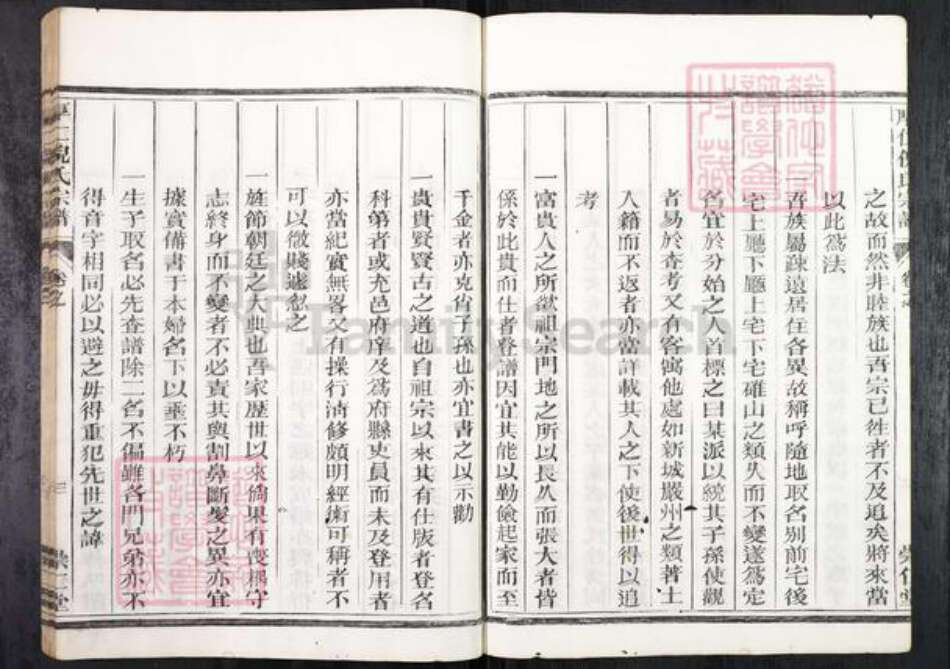 之故而然非睦族也吾宗已徃者不及追矣將來當
以此爲法
一吾族屬疎遠居住各異故稱呼隨地取名别前宅後
宅上廳下廳上宅下宅碓山之類久而不變遂爲定
名宜於分始之人首標之曰某派以統其子孫使觀
者易於查考又有客寓他處如新城嚴州之類著土
入籍而不返者亦當詳載其人之下使後世得以追
考
一富貴人之所欲祖宗門地之所以長久而張大者皆
係於此貴而仕者登譜因宜其能以勤儉起家而至
千金者亦克省子孫也亦宜書之以示勸
一貴貴賢賢古之道也自祖宗以來其有仕版者登名
科第者或充邑府庠及爲府縣吏員而未及登用者
亦當紀實無畧又有操行淸修頗明經術可稱者不
可以微賤遽忽之
一旌節朝廷之大典也吾家歷世以來倘果有喪耦守
志終身而不變者不必責其與割鼻斷髮之異亦宜
據實備書于本婦名下以垂不朽
一生子取名必先查譜除二名不偏雖各門兄弟亦不
得音字相同必以避之毋得重犯先世之諱
倪氏宗譜
卷之
三
崇仁堂
FamilySearch